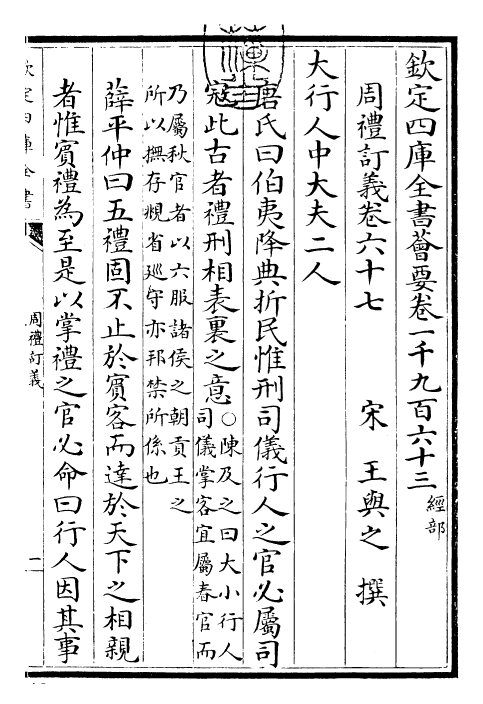 欽定四庫全書薈要卷一千九百六十三 經部
周禮訂義卷六十七 宋 王與之 撰
大行人中大夫二人
唐氏曰伯夷降典折民惟刑司儀行人之官必屬司
宼此古者禮刑相表裏之意○陳及之曰大小行人
司儀掌客宜屬春官而
乃屬秋官者以六服諸侯之朝貢王之
所以撫存覜省廵守亦邦禁所係也
薛平仲曰五禮固不止於賓客而達於天下之相親
者惟賓禮為至是以掌禮之官必命曰行人因其事
欽定四庫全書
周禮訂義